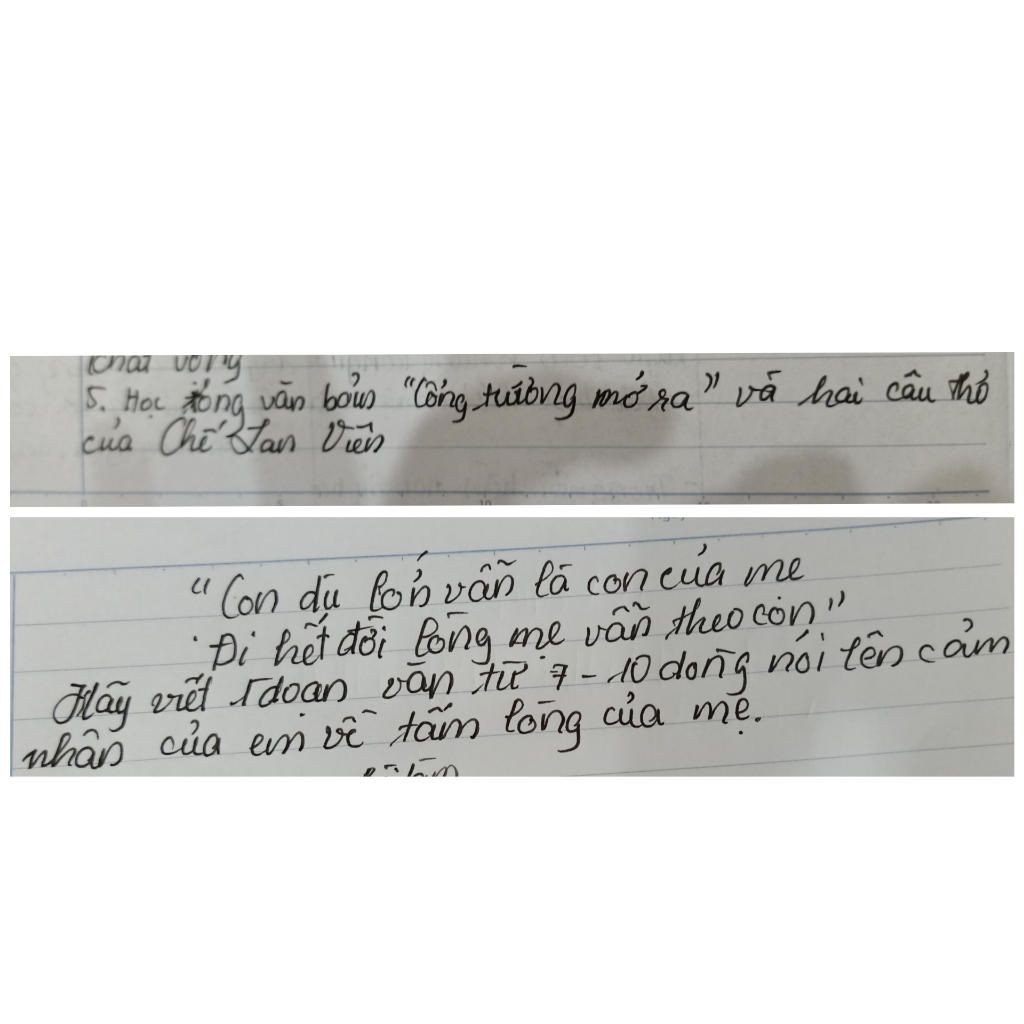 khai vọng
5. Học xong văn bản "Cổng trường mở ra" và hai câu thơ
của Chế Lan Viên
"Con dù lớn vẫn là con của mẹ
Đi hết đời lòng mẹ vẫn theo con"
Hãy viết 1 đoạn văn từ 7 - 10 dòng nói lên cảm
nhận của em về tấm lòng của mẹ.